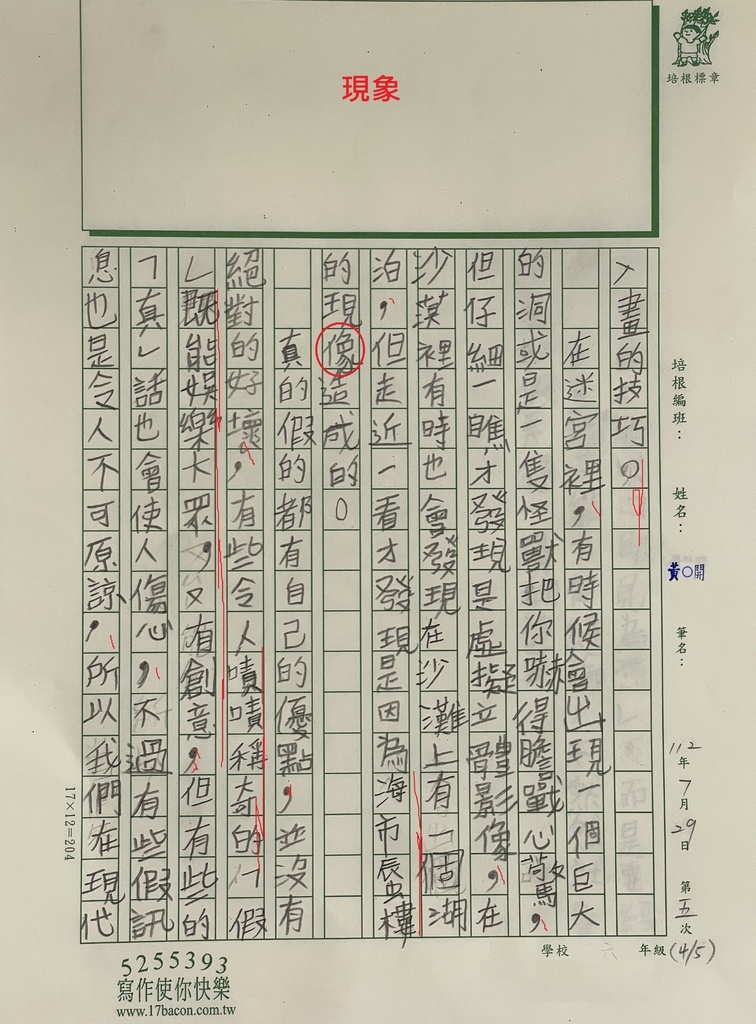 現象
培根標章
入畫的技巧。
在迷宮裡，有時候會出現一個巨大
的洞或是一隻怪獸把你嚇得膽戰心驚，
但仔細一瞧才發現是虛擬立體影像，在
沙漠裡有時也會發現在沙灘上有一個湖
泊，但走近一看才發現是因為海市蜃樓
的現像造成的。
真的假的都有自己的優點，並沒有
絕對的好壞，有些令人嘖嘖稱奇的「假
」既能娛樂大眾，又有創意，但有些的
「真」話也會使人傷心，不過有些假訊
息也是令人不可原諒，所以我們在現代
培根編班：
姓名：
黃〇開
筆名：
112年7月29日
第五次
(4/5)
學校 六 年級
17×12=204
5255393
寫作使你快樂
www.17bacon.com.tw